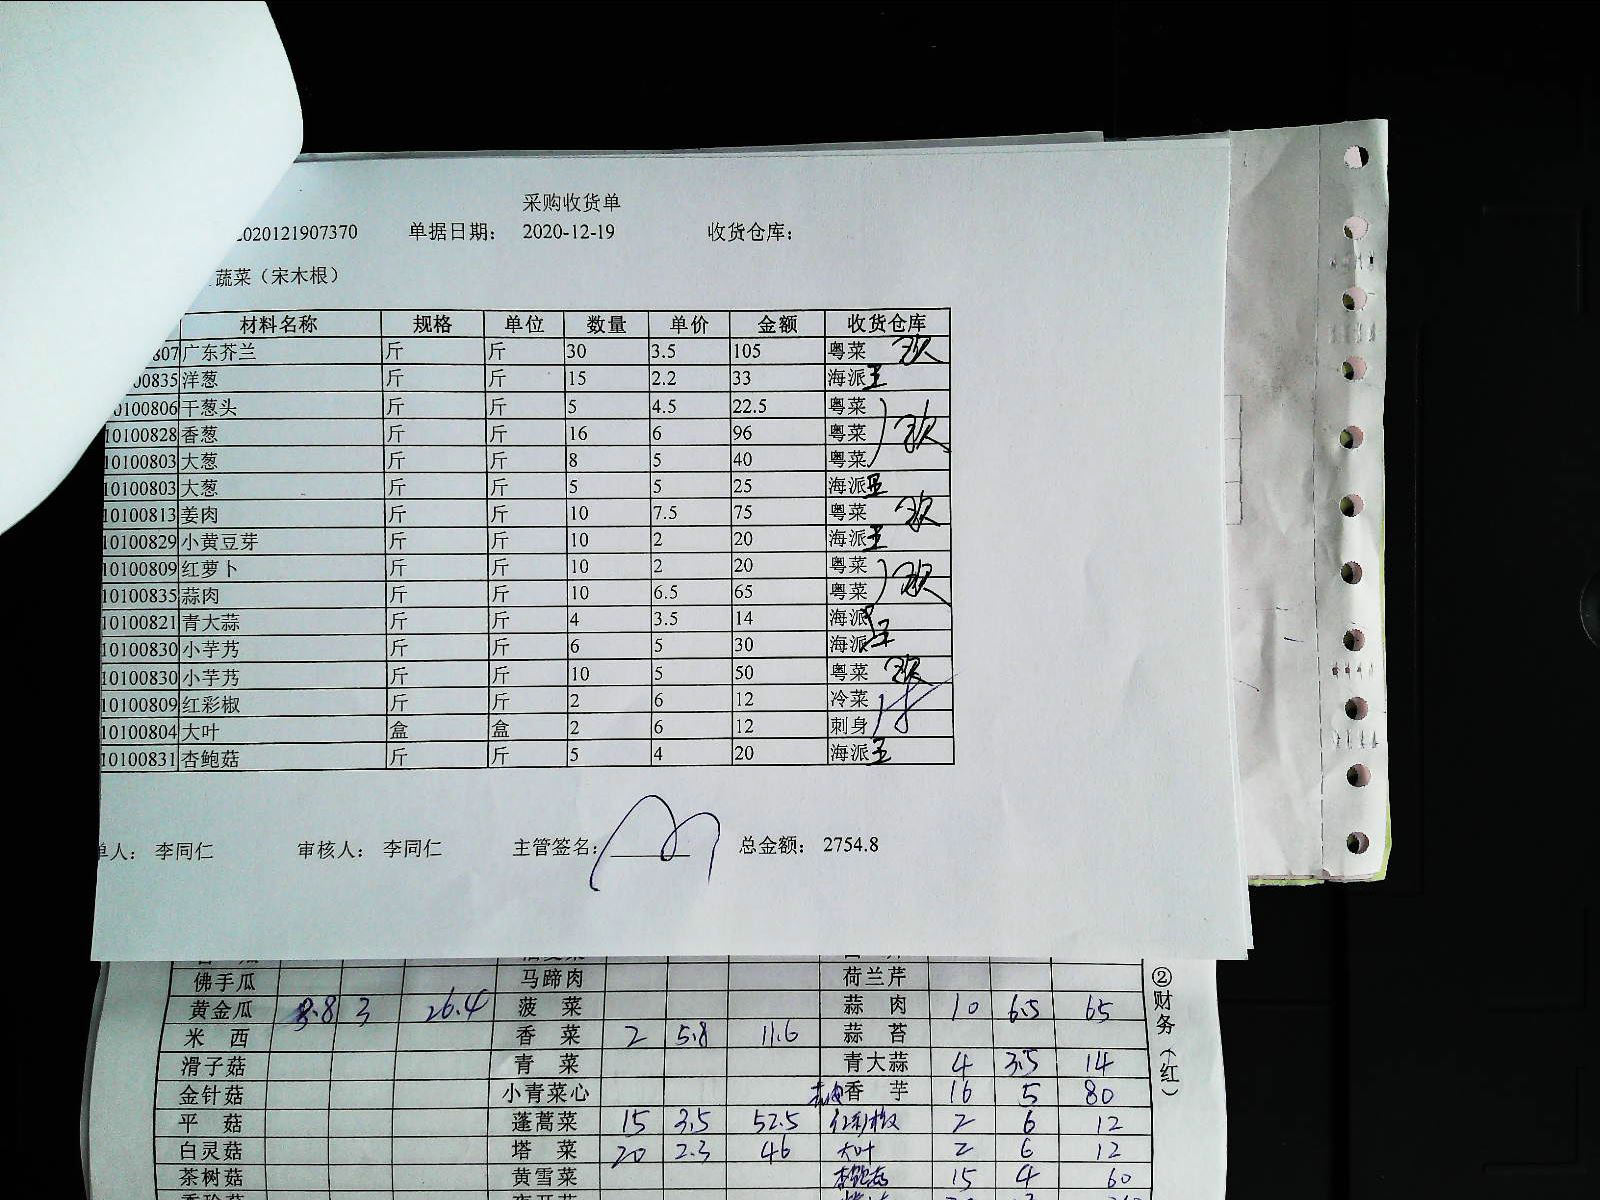 采购收货单
2020121907370 单据日期： 2020-12-19 收货仓库：
蔬菜（宋木根）
材料名称 规格 单位 数量 单价 金额 收货仓库
807 广东芥兰 斤 斤 30 3.5 105 粤菜
00835 洋葱 斤 斤 15 2.2 33 海派 王
0100806 干葱头 斤 斤 5 4.5 22.5 粤菜
10100828 香葱 斤 斤 16 6 96 粤菜
10100803 大葱 斤 斤 8 5 40 粤菜
10100803 大葱 斤 斤 5 5 25 海派 王
10100813 姜肉 斤 斤 10 7.5 75 粤菜
10100829 小黄豆芽 斤 斤 10 2 20 海派 王
10100809 红萝卜 斤 斤 10 2 20 粤菜
10100835 蒜肉 斤 斤 10 6.5 65 粤菜
10100821 青大蒜 斤 斤 4 3.5 14 海派
10100830 小芋艿 斤 斤 6 5 30 海派 王
10100830 小芋艿 斤 斤 10 5 50 粤菜
10100809 红彩椒 斤 斤 2 6 12 冷菜
10100804 大叶 盒 盒 2 6 12 刺身
10100831 杏鲍菇 斤 斤 5 4 20 海派 王
单人： 李同仁 审核人： 李同仁 主管签名： 总金额： 2754.8
佛手瓜 马蹄肉 荷兰芹
黄金瓜 8.8 3 26.4 菠菜 蒜肉 10 6.5 65
米西 香菜 2 5.8 11.6 蒜苔
滑子菇 青菜 青大蒜 4 3.5 14
金针菇 小青菜心 香芋 16 5 80
平菇 蓬蒿菜 15 3.5 52.5 红彩椒 2 6 12
白灵菇 塔菜 20 2.3 46 大叶 2 6 12
茶树菇 黄雪菜 杏鲍菇 15 4 60
②财务（红）